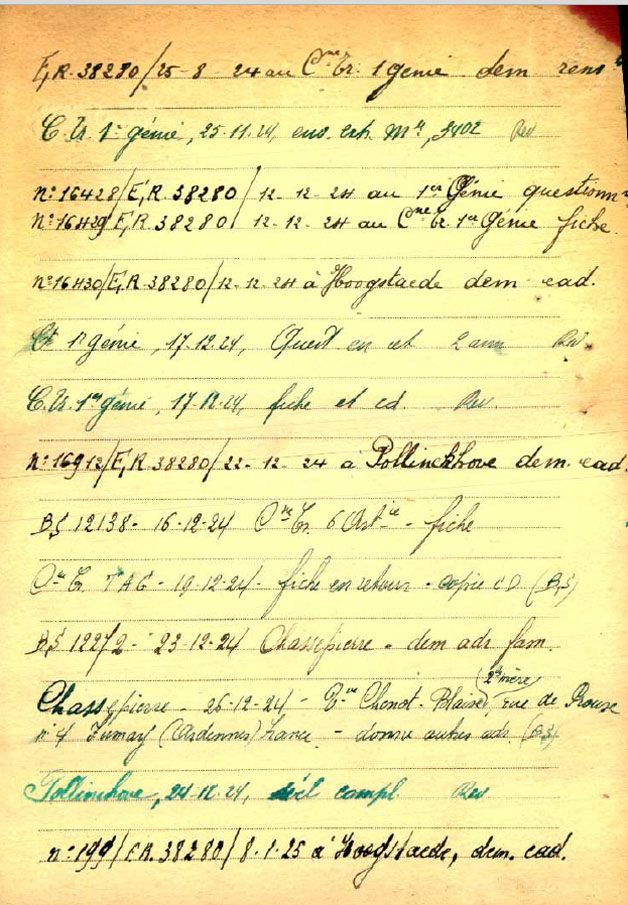 E,R. 38280/25-8-24 au Cne Tr. 1 Génie dem rens
C. Tr. 1r génie, 25.11.24, env. exh. Mle, 3402 Rev
n: 16428/E,R 38280/12-12-24 au 1er Génie questionn
n: 16429/E,R. 38280/12-12-24 au Cne Tr. 1er Génie fiche.
n: 16430/E,R 38280/12-12-24 à Hoogstaede dem cad.
1r génie, 17.12.24, Quest en et 2 ann Rev.
C. Tr. 1er génie, 17-12-24, fiche et cd Rev.
n: 16912/E,R 38280/22-12-24 à Pollinckhove dem. cad.
B$ 12138 - 16-12-24 Cne Tr. 6 Art ie - fiche
Cne Tr. TAG - 19-12-24 - fiche en retour - copie CD (B,$)
B$ 12272 - 23-12-24 Chassepierre - dem adr fam.
Chassepierre - 26-12-24 - Vve Chenot-Blaise, (mère) rue de
n° 4 Fumay (Ardennes) France - donne autres adr. (B$)
Pollinchove, 24-12-24, compl. Rev
n: 199/E.R. 38280/8.1.25 à Hoogstaede, dem. cad.